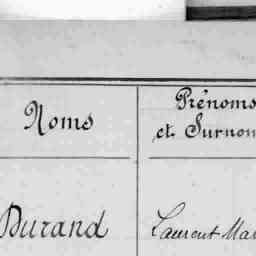 Noms
Prénoms
et Surnom
Durand
Laurent Mar